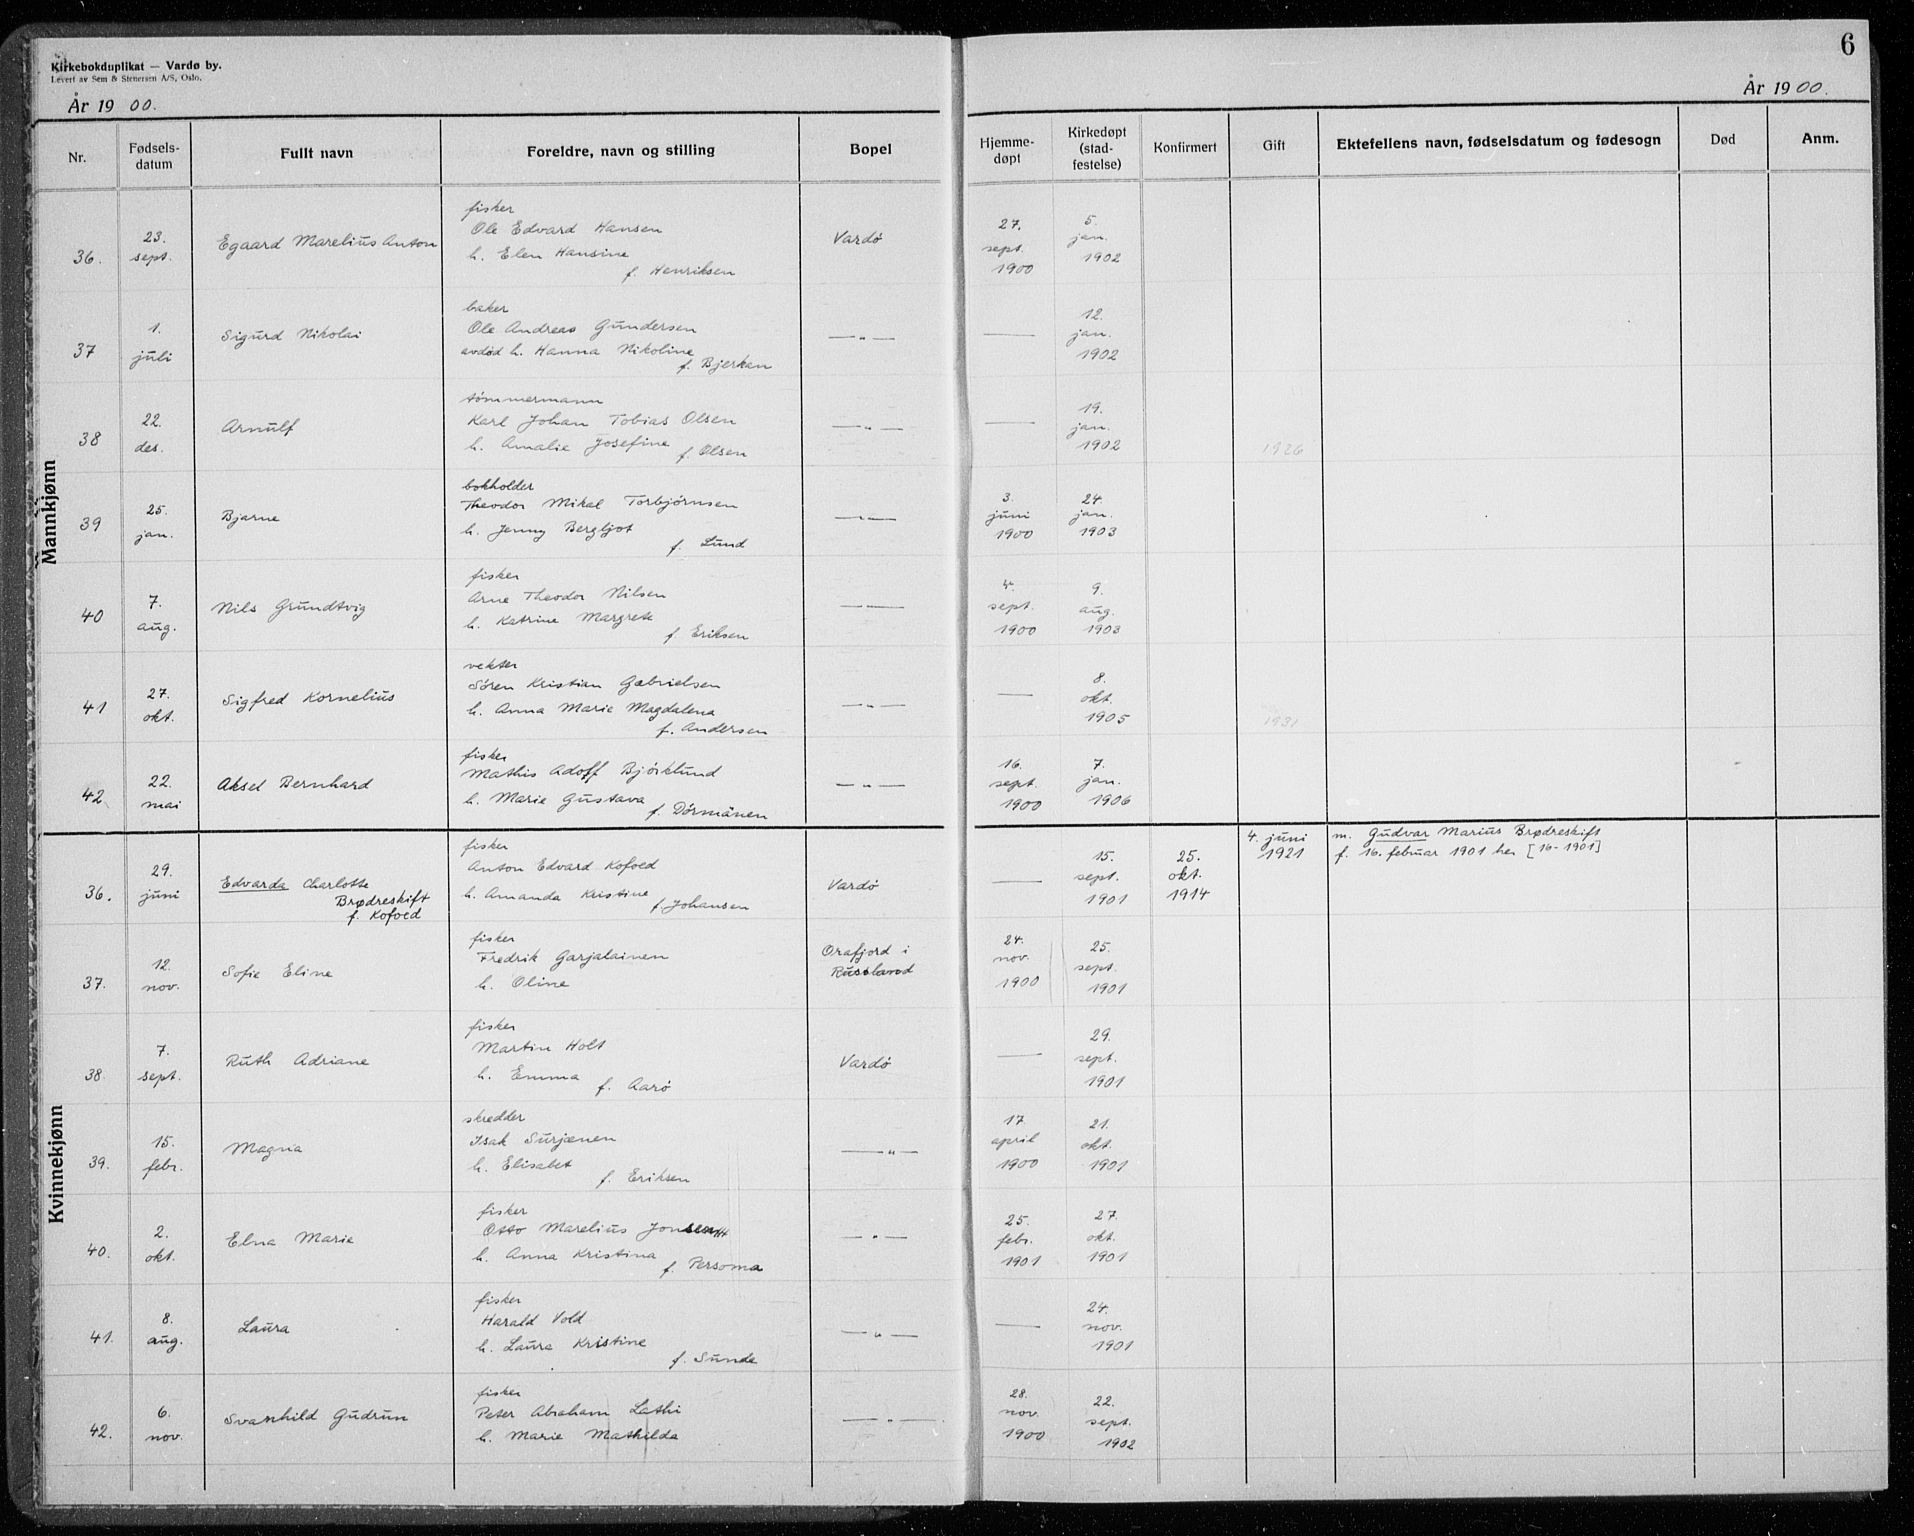 Kirkebokduplikat — Vardø by.
Levert av Sem & Stenersen A/S, Oslo.
År 1900.
6
År 1900.
Nr. Fødselsdatum Fullt navn Foreldre, navn og stilling Bopel Hjemmedøpt Kirkedøpt (stadfestelse) Konfirmert Gift Ektefellens navn, fødselsdatum og fødesogn Død Anm.
Mannkjønn
36. 23. sept. Egaard Marelius Anton
fisker
Ole Edvard Hansen
h. Elen Hansine
f. Henriksen
Vardø
27. sept. 1900
5. jan. 1902
37 1. juli Sigurd Nikolai
baker
Ole Andreas Gundersen
avdød h. Hanna Nikoline
f. Bjerkan
— " —
—
12. jan. 1902
38 22. des. Arnulf
tømmermann
Karl Johan Tobias Olsen
h. Amalie Josefine
f. Olsen
— " —
—
19. jan. 1902
1926
39 25. jan. Bjarne
bokholder
Theodor Mikal Torbjørnsen
h. Jenny Bergljot
f. Lund
— " —
3. juni 1900
24. jan. 1903
40 7. aug. Nils Grundtvig
fisker
Arne Theodor Nilsen
h. Katrine Margrete
f. Eriksen
— " —
4. sept. 1900
9. aug. 1903
41 27. okt. Sigfred Kornelius
vekter
Søren Kristian Gabrielsen
h. Anna Marie Magdalena
f. Andersen
— " —
—
8. okt. 1905
1931
42 22. mai Aksel Bernhard
fisker
Mathis Adoff Bjørklund
h. Marie Gustava
f. Dörmänen
— " —
16. sept. 1900
7. jan. 1906
Kvinnekjønn
36. 29. juni Edvarda Charlotte
Brødreskift
f. Kofoed
fisker
Anton Edvard Kofoed
h. Amanda Kristine
f. Johansen
Vardø
—
15. sept. 1901
25. okt. 1914
4. juni 1921
m. Gudvar Marius Brødreskift
f. 16. februar 1901 her [16-1901]
37. 12. nov. Sofie Eline
fisker
Fredrik Garjalainen
h. Oline
Orafjord i
Russland
24. nov. 1900
25. sept. 1901
38. 7. sept. Ruth Adriane
fisker
Martin Holt
h. Emma f. Aarø
Vardø
—
29. sept. 1901
39. 15. febr. Magna
skredder
Isak Surjænen
h. Elisabet
f. Eriksen
— " —
17 april 1900
21. okt. 1901
40. 2. okt. Elna Marie
fisker
Otto Marelius
h. Anna Kristina
f. Persoma
— " —
25. febr. 1901
27. okt. 1901
41. 8. aug. Laura
fisker
Harald Vold
h. Laura Kristine
f. Sunde
— " —
—
24. nov. 1901
42. 6. nov. Svanhild Gudrun
fisker
Peter Abraham Lathi
h. Marie Mathilda
— " —
28. nov. 1900
22. sept. 1902